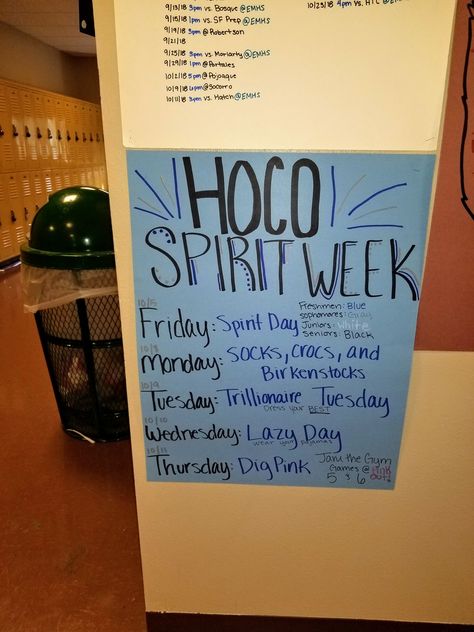 9/13/18 5pm vs. Bosque @EMHS
9/15/18 1pm vs. SF Prep @EMHS
9/19/18 3pm @Robertson
9/21/18
9/25/18 3pm vs. Moriarty @EMHS
9/29/18 1pm @Portales
10/2/18 5pm @Pojoaque
10/9/18 6pm @Socorro
10/11/18 3pm vs. Hatch @EMHS
10/23/18 4pm vs. HTC @EMHS
HOCO
SPIRIT WEEK
10/5
Friday: Spirit Day
Freshmen: Blue
sophomores: Gray
Juniors: White
Seniors: Black
10/8
Monday: SOCKS, CROCS, and
Birkenstocks
10/9
Tuesday: Trillionaire Tuesday
Dress your BEST
10/10
Wednesday: Lazy Day
wear your pajamas
10/11
Thursday: Dig Pink
Jam the Gym
Games @
5 & 6
PINK
OUT!